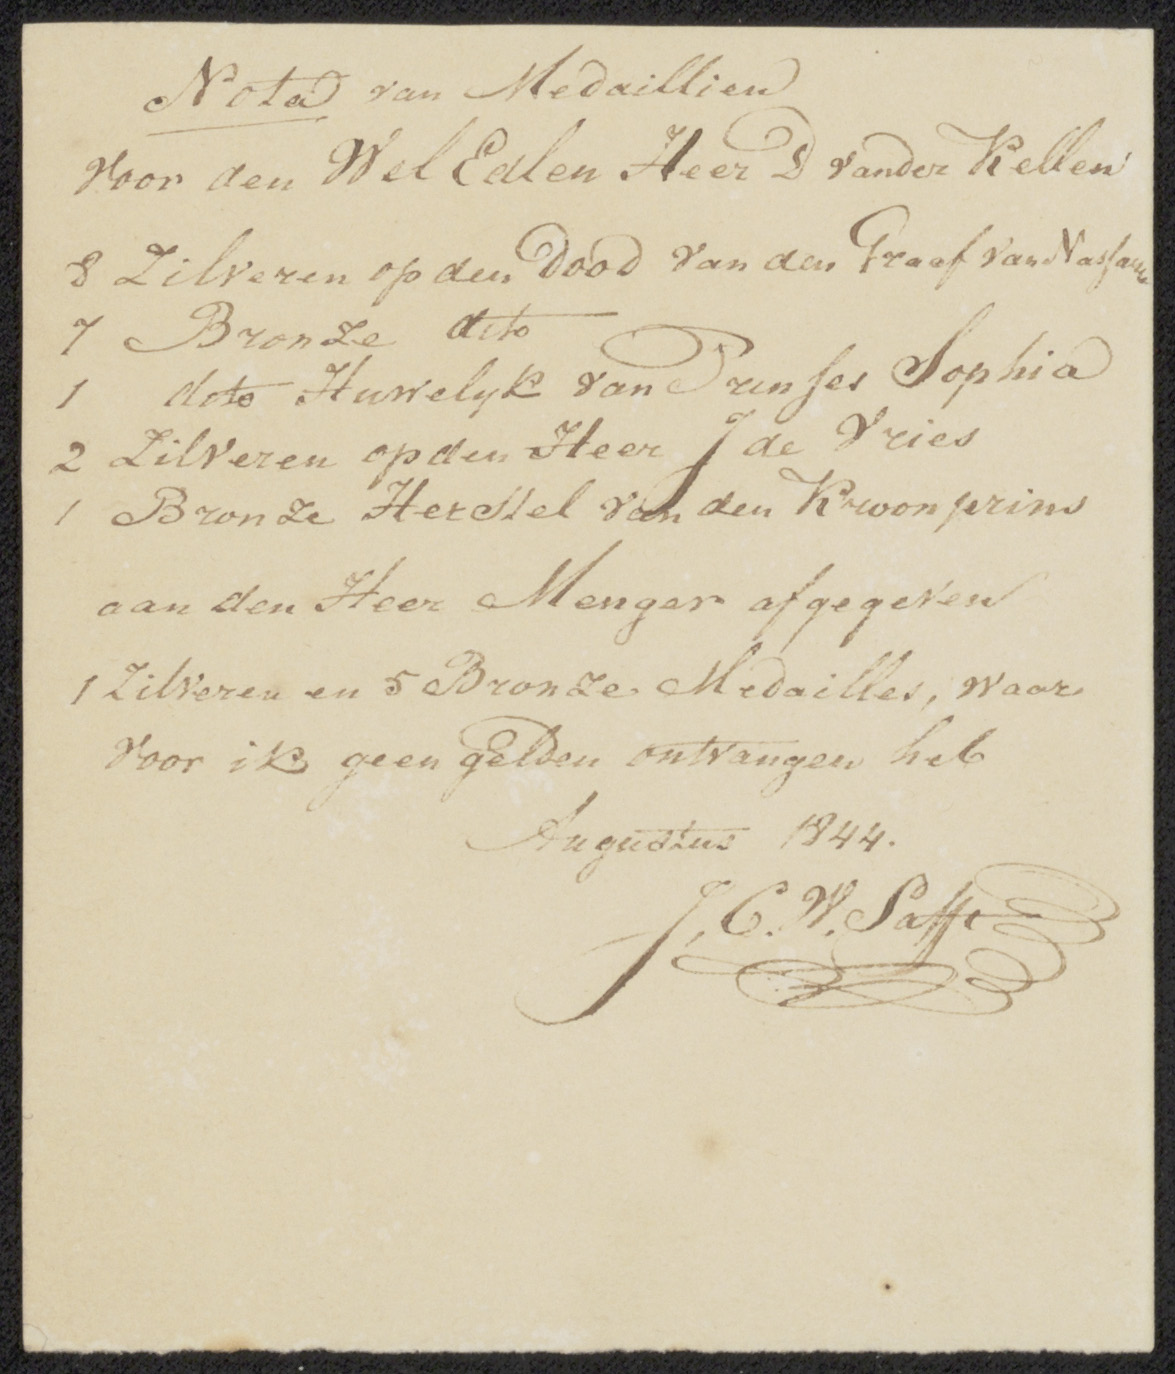 Nota van Medaillien
Voor den Wel Edlen Heer D vander Kellen
8 Zilveren op den Dood van den Graaf van Nassau
7 Bronze dito
1 dito Huwelyk van Prinses Sophia
2 Zilveren op den Heer J de Vries
1 Bronze Herstel van den Kroonprins
aan den Heer Menger afgegeven
1 Zilveren en 5 Bronze Medailles, waar
voor ik geen gelden ontvangen heb
Augustus 1844.
J. C. W. Safft